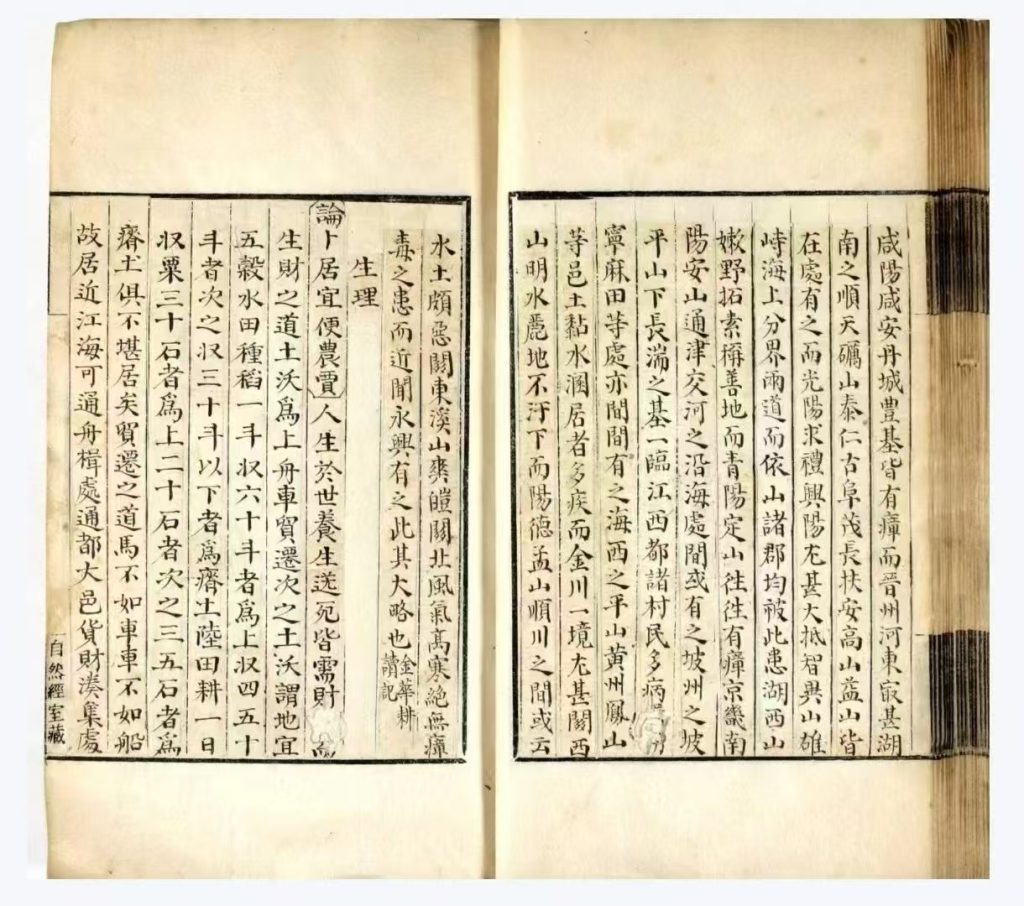 咸陽咸安丹城豊基皆有瘴而晉州河東㝡甚湖
南之順天礪山泰仁古阜茂長扶安高山益山皆
在處有之而光陽求禮興陽尤甚大抵智異山雄
峙海上分界兩道而依山諸郡均被此患湖西山
嫩野拓素稱善地而青陽定山徃徃有瘴京畿南
陽安山通津交河之沿海處間或有之坡州之坡
平山下長湍之基一臨江西都諸村民多病
寧麻田等處亦間間有之海西之平山黃州鳳山
等邑土黏水溷居者多疾而金川一境尤甚關西
山明水麗地不汙下而陽德孟山順川之間或云
水土頗惡關東溪山爽皚關北風氣高寒絶無瘴
毒之患而近聞永興有之此其大略也金華耕
讀記
生理
論卜居宜便農賈人生於世養生送死皆需財
生財之道土沃爲上舟車貿遷次之土沃謂地宜
五穀水田種稻一斗収六十斗者爲上収四五十
斗者次之収三十斗以下者爲瘠土陸田耕一日
収粟三十石者爲上二十石者次之三五石者爲
瘠土俱不堪居矣貿遷之道馬不如車車不如船
故居近江海可通舟楫處通都大邑貨財湊集處
自然經室藏